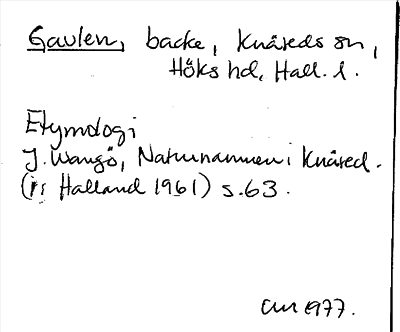 Gavlen, backe, Knäreds sn,
Höks hd, Hall. l.
Etymologi
J. Wangö, Naturnamnen i Knäred.
(i: Halland 1961) s. 63.
1977.